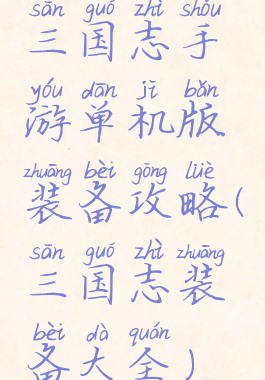 sān guó zhì shǒu
三国志手
yóu dān jī bǎn
游单机版
zhuāng bèi gōng lüè
装备攻略(
sān guó zhì zhuāng
三国志装
bèi dà quán
备大全)